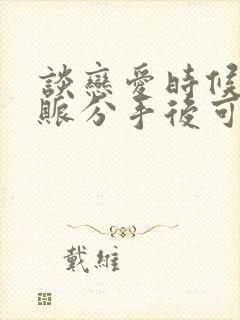 談戀愛時候
賬分手後可
戴維